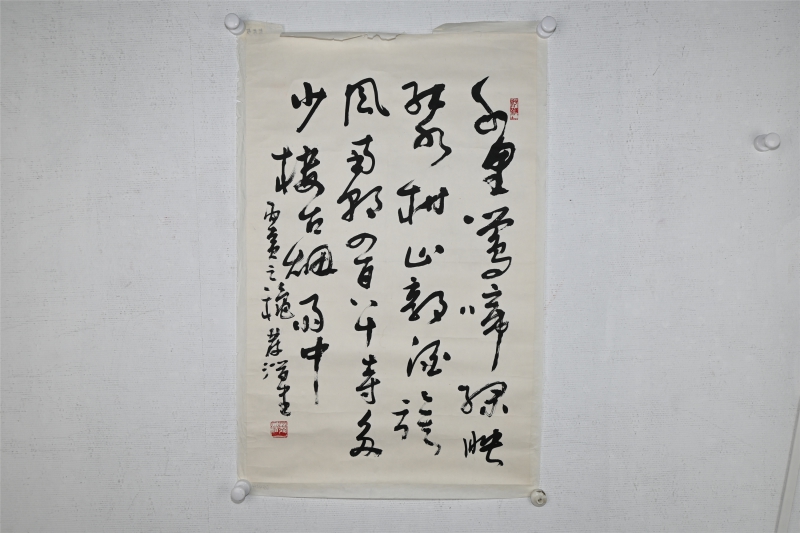 千里鶯啼綠映
紅水村山郭酒旗
風南朝四百八十寺多
少樓台烟雨中
丙寅之穐